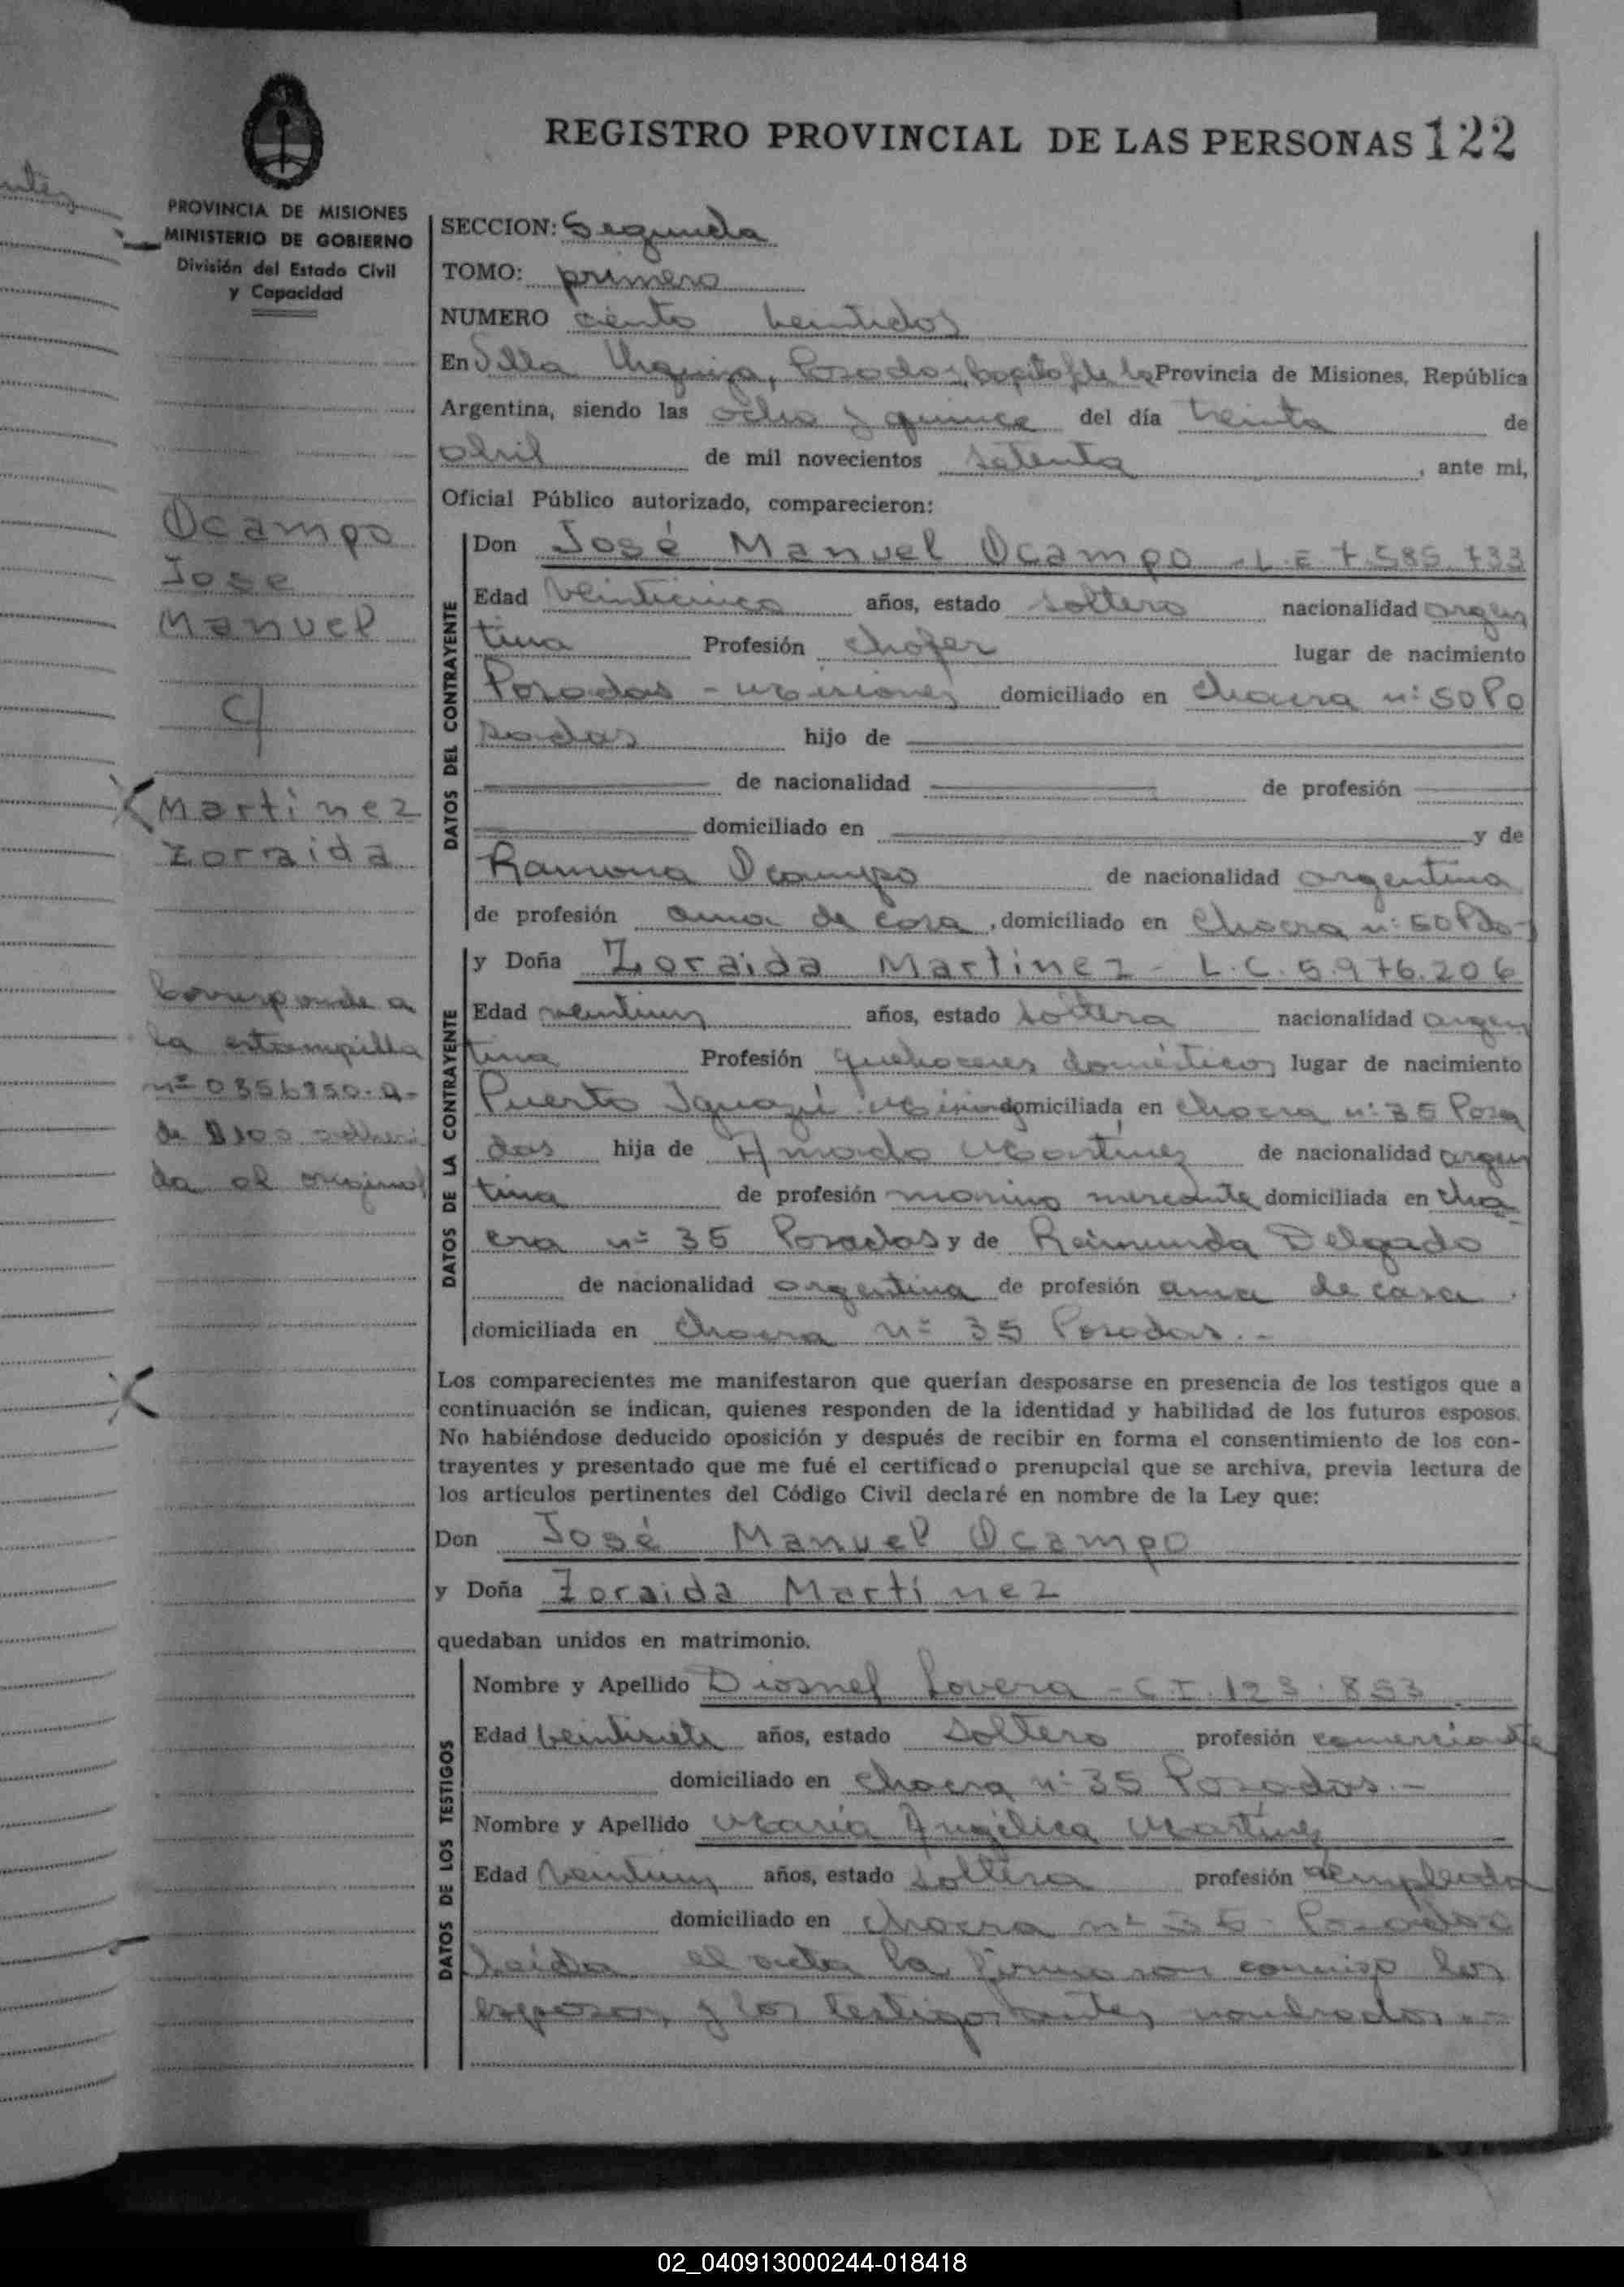 REGISTRO PROVINCIAL DE LAS PERSONAS 122
PROVINCIA DE MISIONES
MINISTERIO DE GOBIERNO
División del Estado Civil
y Capacidad
Ocampo
Jose
Manuel
c/
Martinez
Zoraida
Corresponde a
la estampilla
nº 0356850-A-
de $100 adheri
da al original
SECCION: Segunda
TOMO: primero
NUMERO ciento veintidos
En Villa Urquiza, Posadas, Capital de la Provincia de Misiones, República
Argentina, siendo las ocho y quince del día treinta de
abril de mil novecientos setenta, ante mi,
Oficial Público autorizado, comparecieron:
DATOS DEL CONTRAYENTE
Don José Manuel Ocampo - L.E 7.585.733
Edad veinticinco años, estado soltero nacionalidad argen
tina Profesión chofer lugar de nacimiento
Posadas - Misiones domiciliado en chacra nº 50 Po
sadas hijo de
de nacionalidad de profesión
domiciliado en y de
Ramona Ocampo de nacionalidad argentina
de profesión ama de casa, domiciliado en chacra nº 50 Pdas
DATOS DE LA CONTRAYENTE
y Doña Zoraida Martinez - L.C. 5.976.206
Edad veintiun años, estado soltera nacionalidad argen
tina Profesión quehaceres domésticos lugar de nacimiento
Puerto Iguazú Misiones domiciliada en chacra nº 35 Posa
das hija de Amado Martínez de nacionalidad argen
tina de profesión marino mercante domiciliada en cha
cra nº 35 Posadas y de Reimunda Delgado
de nacionalidad argentina de profesión ama de casa.
domiciliada en chacra nº 35 Posadas.-
Los comparecientes me manifestaron que querían desposarse en presencia de los testigos que a
continuación se indican, quienes responden de la identidad y habilidad de los futuros esposos.
No habiéndose deducido oposición y después de recibir en forma el consentimiento de los con-
trayentes y presentado que me fué el certificado prenupcial que se archiva, previa lectura de
los artículos pertinentes del Código Civil declaré en nombre de la Ley que:
Don José Manuel Ocampo
y Doña Zoraida Martínez
quedaban unidos en matrimonio.
DATOS DE LOS TESTIGOS
Nombre y Apellido Diosnel Lovera - C.I. 123.853
Edad veintisiete años, estado soltero profesión comerciante
domiciliado en chacra nº 35 Posadas.-
Nombre y Apellido María Angélica Martínez
Edad veintiun años, estado soltera profesión empleada
domiciliado en chacra nº 35 - Posadas
Leída el acta la firmaron conmigo los
esposos, y los testigos antes nombrados.-
02_040913000244-018418